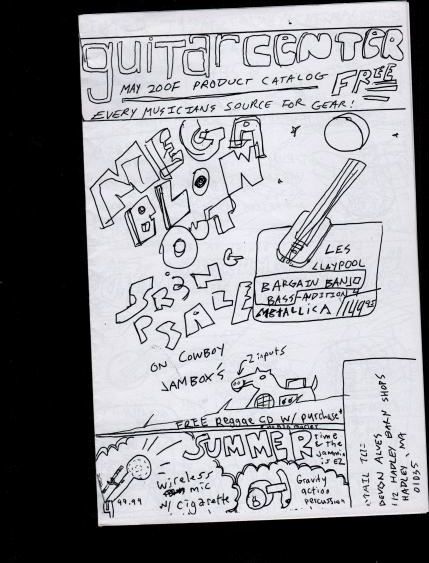 guitar CENTER
MAY 200F PRODUCT CATALOG FREE
EVERY MUSICIANS SOURCE FOR GEAR!
MEGA
BLOW
OUT
SPRING
SALE
LES
CLAYPOOL
BARGAIN BANJO
BASS-AUDITION 4
METALLICA
ON COWBOY
JAMBOX'S
2 inputs
FREE Reggae CD W/ purchase*
SUMMER time
& the
jammin
is EZ
wireless
mic
w/ cigarette
99.99
Gravity
action
percussion
MAIL TO:
DEVON ALVES
112 HADLEY BARN SHOPS
HADLEY, MA
01035